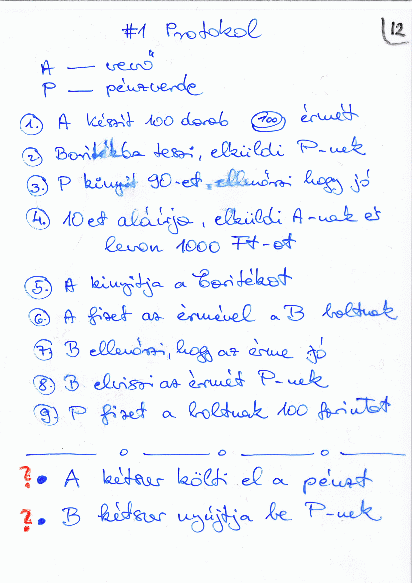 #1 Protokol
12
A — vevő
P — pénzverde
1. A készít 100 darab 100 érmét
2. Borítékba teszi, elküldi P-nek
3. P kinyit 90-et, ellenőrzi hogy jó
4. 10et aláírja, elküldi A-nak és
levon 1000 Ft-ot
5. A kinyitja a borítékot
6. A fizet az érmével a B boltnak
7. B ellenőrzi, hogy az érme jó
8. B elviszi az érmét P-nek
9. P fizet a boltnak 100 forintot
? • A kétszer költi el a pénzt
? • B kétszer nyújtja be P-nek